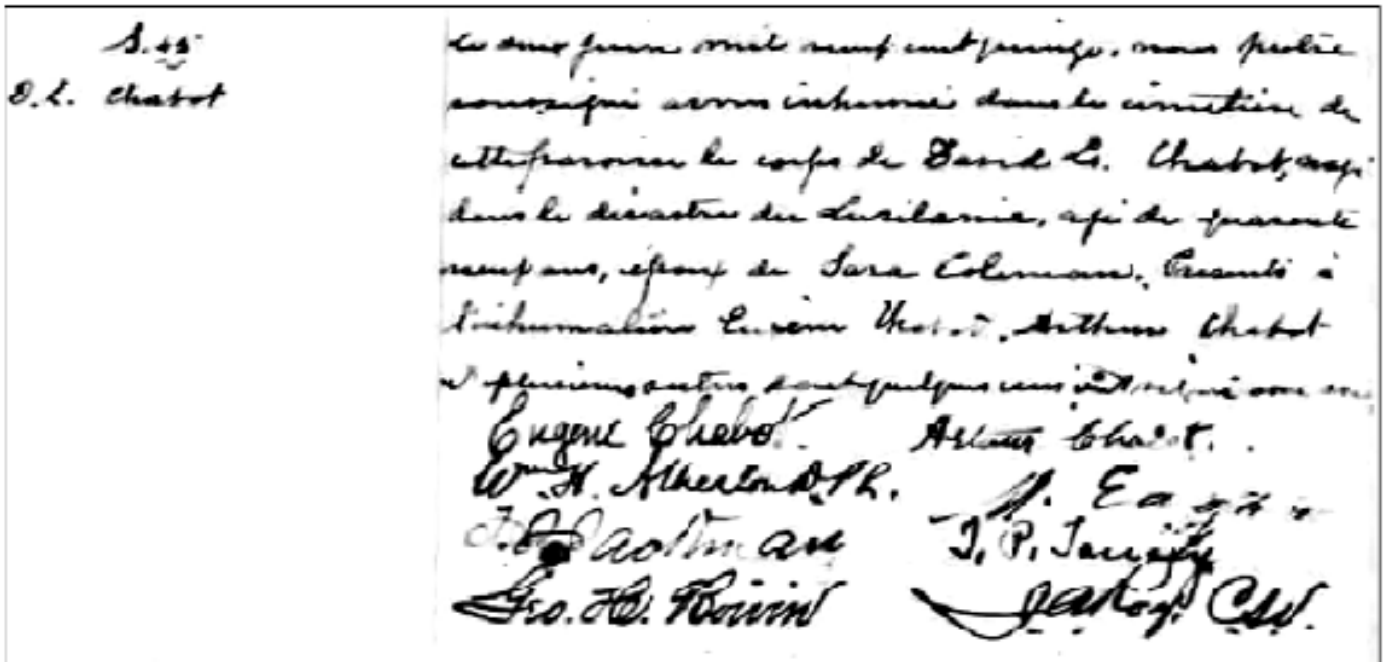 S. 45
D. L. Chabot
Le onze juin mil neuf cent quinze, nous prêtre
soussigné avons inhumé dans le cimetière de
cette paroisse le corps de David L. Chabot,
dans le désastre du Lusitania, agé de quarante
neuf ans, époux de Sara Coleman. Présents à
l'inhumation Eugène Chabot, Arthur Chabot
et plusieurs autres dont quelques uns ont signé avec
Eugene Chabot. Arthur Chabot.
Wm. H. Atherton D. Ph.
Geo. H. Boivin